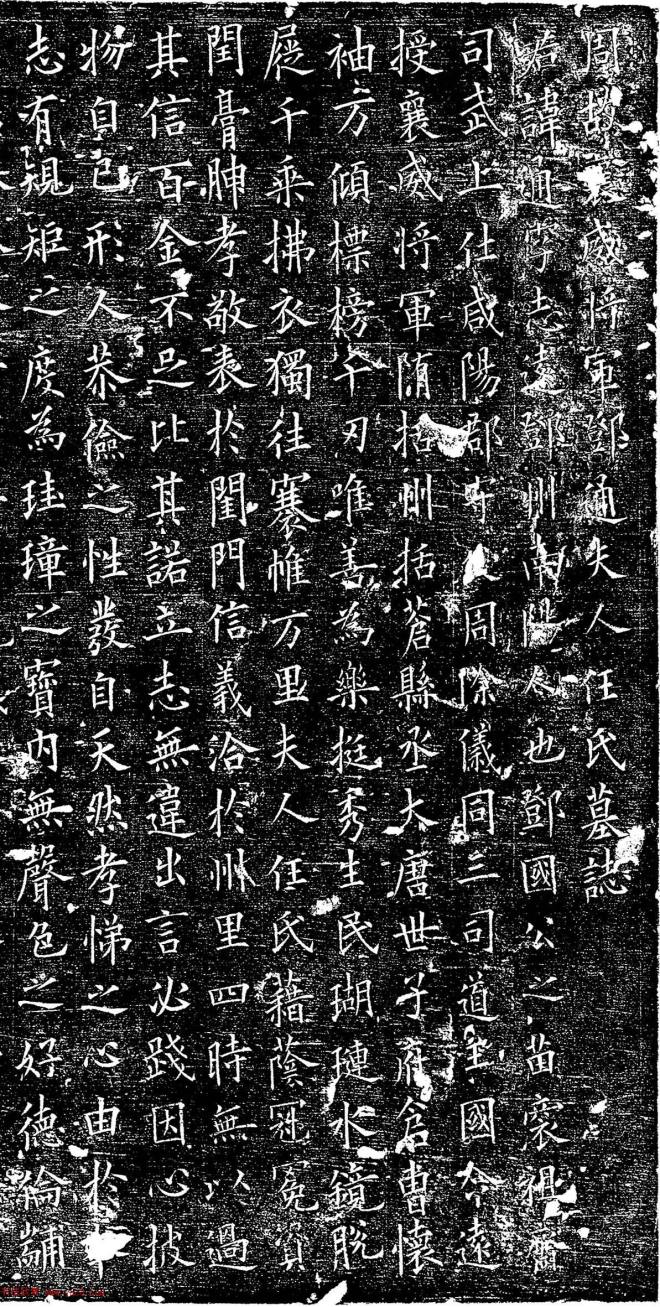 周故襄威將軍鄧通夫人任氏墓誌
諱通字志遠鄧州南陽人也鄧國公之苗裔祖
司武上仕咸陽郡守周除儀同三司道國遠
授襄威將軍隋括州括蒼縣丞大唐世子府倉曹懷
袖方傾標榜千刃唯善為樂挺秀生民瑚璉水鏡脫
屣千乘拂衣獨往褰帷万里夫人任氏藉蔭冠冕資
閏膏腴孝敬表於閨門信義洽於州里四時無以過
其信百金不足比其諾立志無違出言必踐因心披
物自已形人恭儉之性發自天然孝悌之心由於
志有規矩之度為珪璋之寶內無聲色之好德倫黼